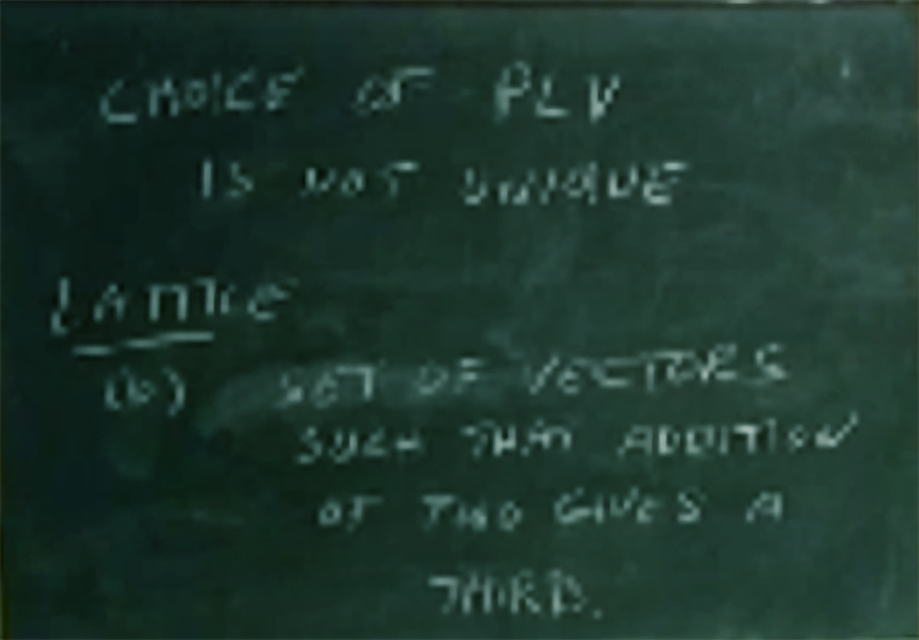 CHOICE OF PLV
IS NOT UNIQUE
LATTICE
(b) SET OF VECTORS
SUCH THAT ADDITION
OF TWO GIVES A
THIRD.